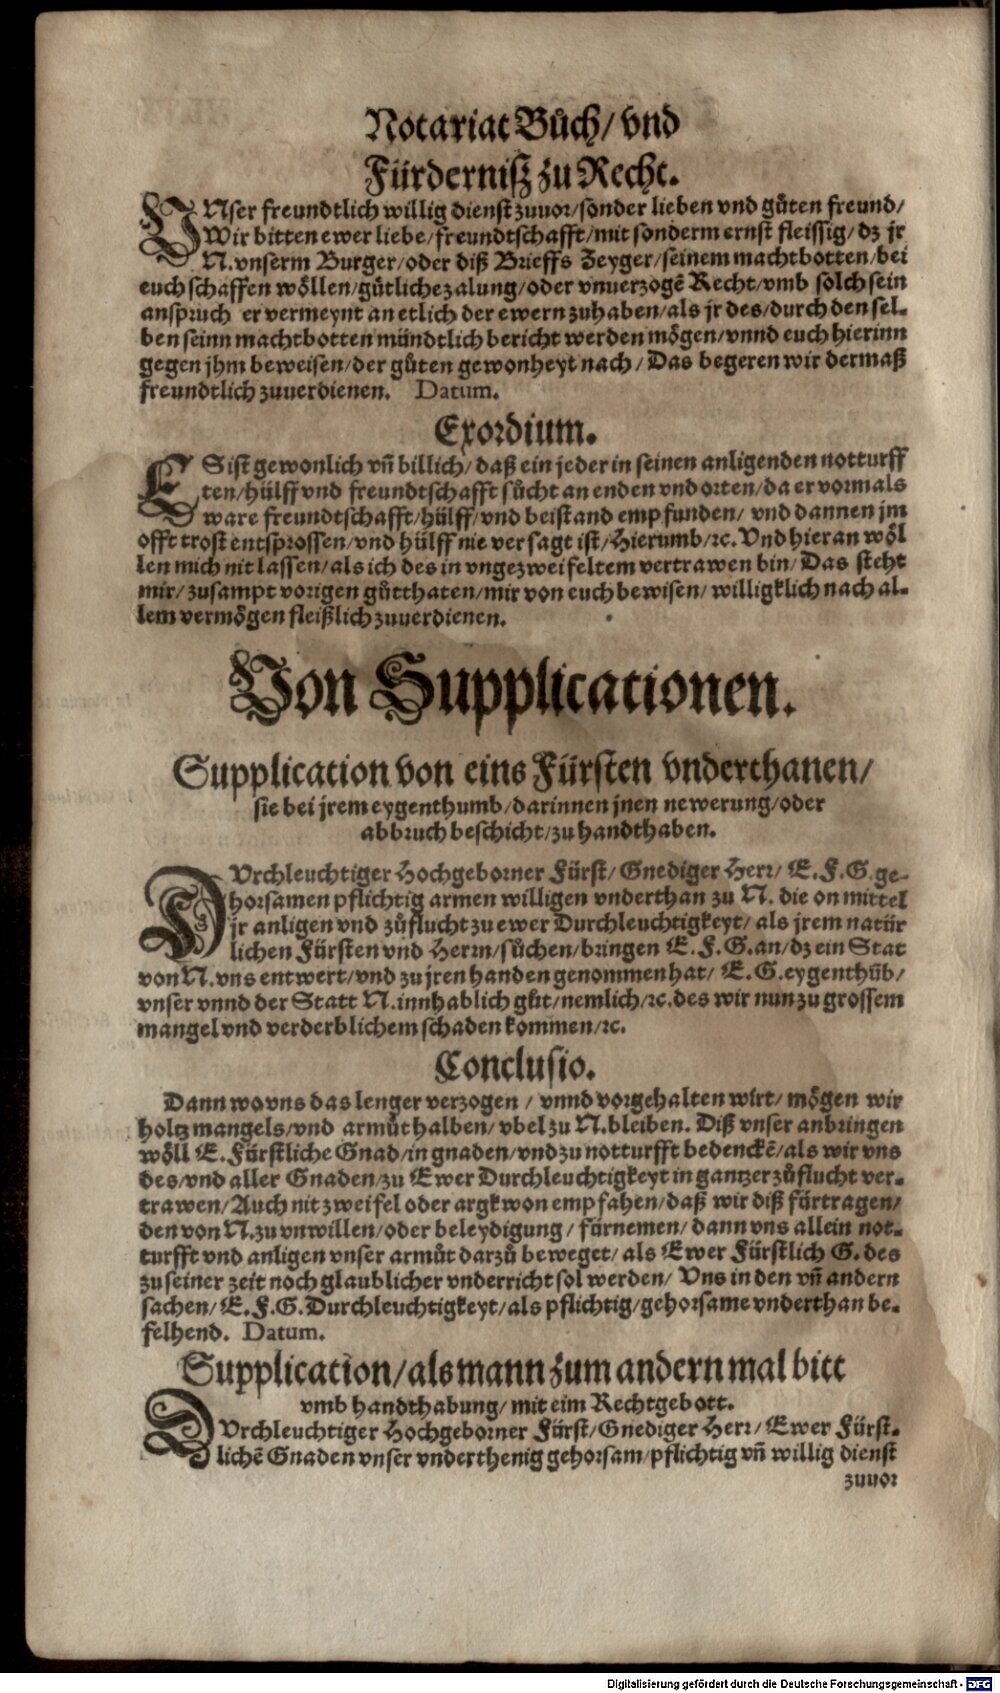 Notariat Bůch/ vnd
Fürderniß zu Recht.
VNser freundtlich willig dienst zuuor/ sonder lieben vnd gůten freund/
Wir bitten ewer liebe/ freundtschafft/ mit sonderm ernst fleissig/ dz jr
N. vnserm Burger/ oder diß Brieffs Zeyger/ seinem machtbotten/ bei
euch schaffen wöllen/ gütliche zalung/ oder vnuerzogē Recht/ vmb solch sein
anspruch er vermeynt an etlich der ewern zuhaben/ als jr des/ durch den sel-
ben seinn machtbotten mündtlich bericht werden mögen/ vnnd euch hierinn
gegen jhm beweisen/ der gůten gewonheyt nach/ Das begeren wir dermaß
freundtlich zuuerdienen. Datum.
Exordium.
ES ist gewonlich vñ billich/ daß ein jeder in seinen anligenden notturff
ten/ hülff vnd freundtschafft sůcht an enden vnd orten/ da er vormals
ware freundtschafft/ hülff/ vnd beistand empfunden/ vnd dannen jm
offt trost entsprossen/ vnd hülff nie versagt ist/ Hierumb/ ꝛc. Vnd hieran wöl
len mich nit lassen/ als ich des in vngezweifeltem vertrawen bin/ Das steht
mir/ zusampt vorigen gůtthaten/ mir von euch bewisen/ willigklich nach al-
lem vermögen fleißlich zuuerdienen.
Von Supplicationen.
Supplication von eins Fürsten vnderthanen/
sie bei jrem eygenthumb/ darinnen jnen newerung/ oder
abbruch beschicht/ zu handthaben.
DVrchleuchtiger Hochgeborner Fürst/ Gnediger Herr/ E. F. G. ge-
horsamen pflichtig armen willigen vnderthan zu N. die on mittel
jr anligen vnd zůflucht zu ewer Durchleuchtigkeyt/ als jrem natür
lichen Fürsten vnd Herrn/ sůchen/ bringen E. F. G. an/ dz ein Stat
von N. vns entwert/ vnd zu jren handen genommen hat/ E. G. eygenthūb/
vnser vnnd der Statt N. innhablich gůt/ nemlich/ ꝛc. des wir nun zu grossem
mangel vnd verderblichem schaden kommen/ ꝛc.
Conclusio.
Dann wo vns das lenger verzogen / vnnd vorgehalten wirt/ mögen wir
holtz mangels/ vnd armůt halben/ vbel zu N. bleiben. Diß vnser anbringen
wöll E. Fürstliche Gnad/ in gnaden/ vnd zu notturfft bedenckē/ als wir vns
des/ vnd aller Gnaden/ zu Ewer Durchleuchtigkeyt in gantzer zůflucht ver-
trawen/ Auch nit zweifel oder argkwon empfahen/ daß wir diß fürtragen/
den von N. zu vnwillen/ oder beleydigung / fürnemen/ dann vns allein not-
turfft vnd anligen vnser armůt darzů beweget/ als Ewer Fürstlich G. des
zu seiner zeit noch glaublicher vnderricht sol werden/ Vns in den vñ andern
sachen/ E. F. G. Durchleuchtigkeyt/ als pflichtig/ gehorsame vnderthan be-
felhend. Datum.
Supplication/ als mann zum andern mal bitt
vmb handthabung/ mit eim Rechtgebott.
DVrchleuchtiger Hochgeborner Fürst/ Gnediger Herr/ Ewer Fürst-
lichē Gnaden vnser vnderthenig gehorsam/ pflichtig vñ willig dienst
zuuor
Digitalisierung gefördert durch die Deutsche Forschungsgemeinschaft - DFG